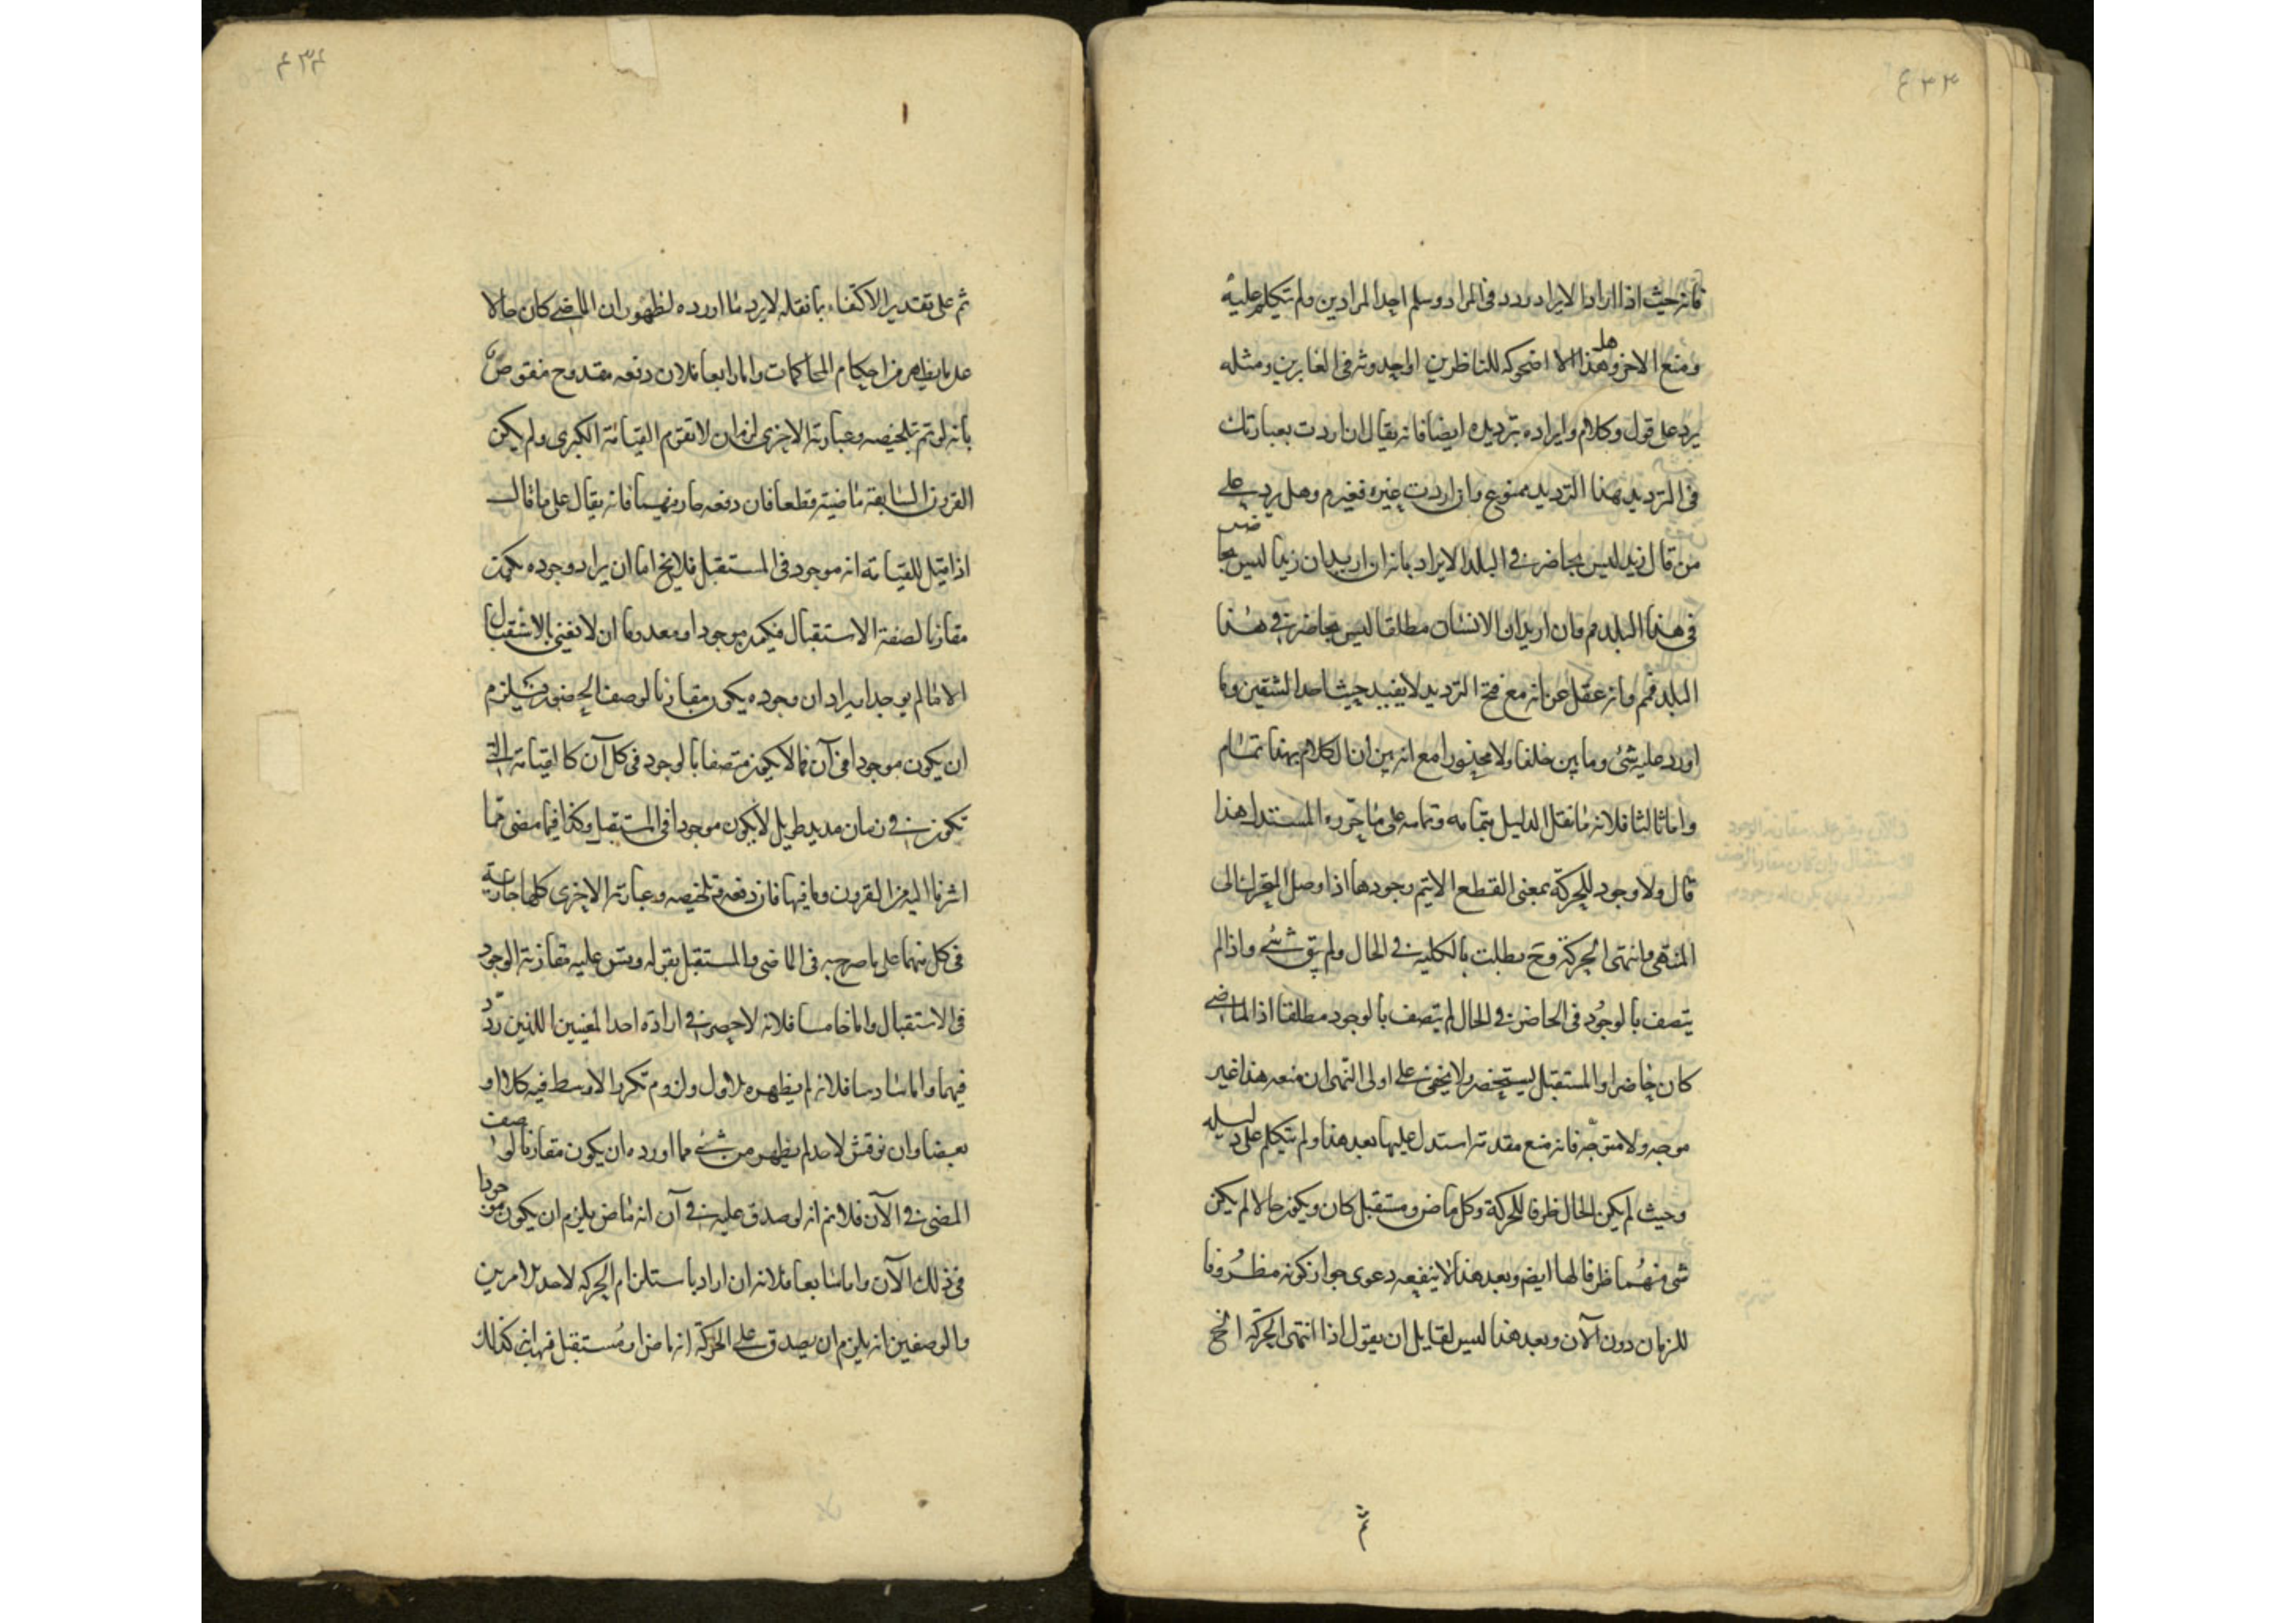 فانه حيث اذا اراد الايراد ردد فى المراد وسلم احد المرادين ولم يتكلم عليه
ومنع الاخر وهل هذا الا اضحوكه للناظرين او احدوثه فى الغابرين ومثله
يرد على قول وكلام وايراده بترديده ايضا فانه يقال ان اردت بعبارتك
فى الترديد هذا الترديد ممنوع وان اردت غيره فغير م وهل يرد على
من قال زيد ليس بحاضر فى البلد الايراد بانه ان اريد ان زيدا ليس بحاضر
فى هذا البلد مم وان اريد ان الانسان مطلقا ليس بحاضر فى هذا
البلد فمم وانه غفل عن انه مع فتح الترديد لا يفيد حيث احد الشقين وما
اورد عليه شئ وما بين خلفا ولا محذورا مع انه بين ان الكلام بهذا تمام
واما ثالثا فلانه ما نقل الدليل بتمامه وتمامه على ما حرره المستدل هذا
قال ولا وجود للحركة بمعنى القطع الا يتم وجودها اذا وصل المتحرك الى
المنتهى وانتهى الحركة وح بطلت بالكليه فى الحال ولم يبق شئ واذا لم
يتصف بالوجود فى الحاضر فى الحال لم يتصف بالوجود مطلقا اذ الماضى
كان حاضرا والمستقبل يستحضر ولا يخفى على اولى النهى ان منعه هذا غير
موجه ولا متوجه فانه منع مقدمة استدل عليها بعد هذا ولم يتكلم على دليله
وحيث لم يكن الحال ظرفا للحركة وكل ماض ومستقبل كان ويكون حالا لم يكن
شئ منهما ظرفا لها ايضا وبعد هذا لا ينفعه دعوى جواز كونه مظروفا
للزمان دون الآن وبعد هذا ليس لقايل ان يقول اذا انتهى الحركة الخ
ثم على تقدير الاكتفاء بما نقله لا يرد ما اورده لظهور ان الماضى كان حالا
على ما يظهر من احكام المحاكمات واما رابعا فلان دفعه مقدوح منقوض
بانه لو تم تلخيصه وعبارته الاخرى لزم ان لا تقوم القيامة الكبرى ولم يكن
القرون السابقة ماضية قطعا فان دفعه جار فيهما فانه يقال على ما قال
اذا قيل للقيامة انه موجود فى المستقبل فلا يخ اما ان يراد وجوده يكون
مقارنا لصفة الاستقبال فيكون موجودا ومعدوما ان لا نعنى بالاستقبال
الا ما لم يوجد او يراد ان وجوده يكون مقارنا لوصف الحضور فيلزم
ان يكون موجودا فى آن فما لا يكون متصفا بالوجود فى كل آن كالقيامة التى
تكون فى زمان مديد طويل لا يكون موجودا فى المستقبل وكذا فيما مضى مما
اشرنا اليه من القرون وما فيها فان دفعه وتلخيصه وعبارته الاخرى كلها جارية
فى كل منهما على ما صرح به فى الماضى والمستقبل بقوله وقس عليه مقارنة الوجود
فى الاستقبال واما خامسا فلانه لا حصر فى ارادة احد المعنيين اللذين ردد
فيهما واما سادسا فلانه لم يظهره الاول ولزوم تكرر الاوسط فيه كلا او
بعضا وان نوقش لاحد لم يظهر من شئ مما اورده ان يكون مقارنا لوصف
المضى فى الآن فلا نم انه لو صدق عليه فى آن انه ماض يلزم ان يكون موجودا
فى ذلك الآن واما سابعا فلانه ان اراد باستلزام الحركه لاحد الامرين
والوصفين انه يلزم ان يصدق على الحركة انها ماض او مستقبل فهب انه كذلك